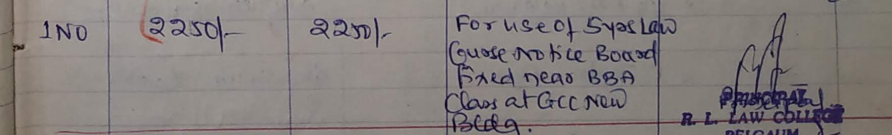 1NO 2250/- 2250/- For use of 5yrs Law
Course Notice Board
Fixed near BBA
Class at GCC New
Bldg.
PRINCIPAL
R. L. LAW COLLEGE
BELGAUM